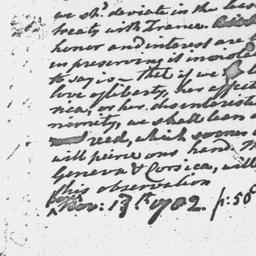 we shd. deviate in the leas
treaty with France.
honor and interest are
in preserving it inviola
to say is — that if we
love of liberty, her affect
rica, or her disinterested
nimity, we shall lean o
reed, which sooner o
will peirce our hand. Th
Geneva & Corsica, will
this observation
Nov: 13th 1782. p: 50